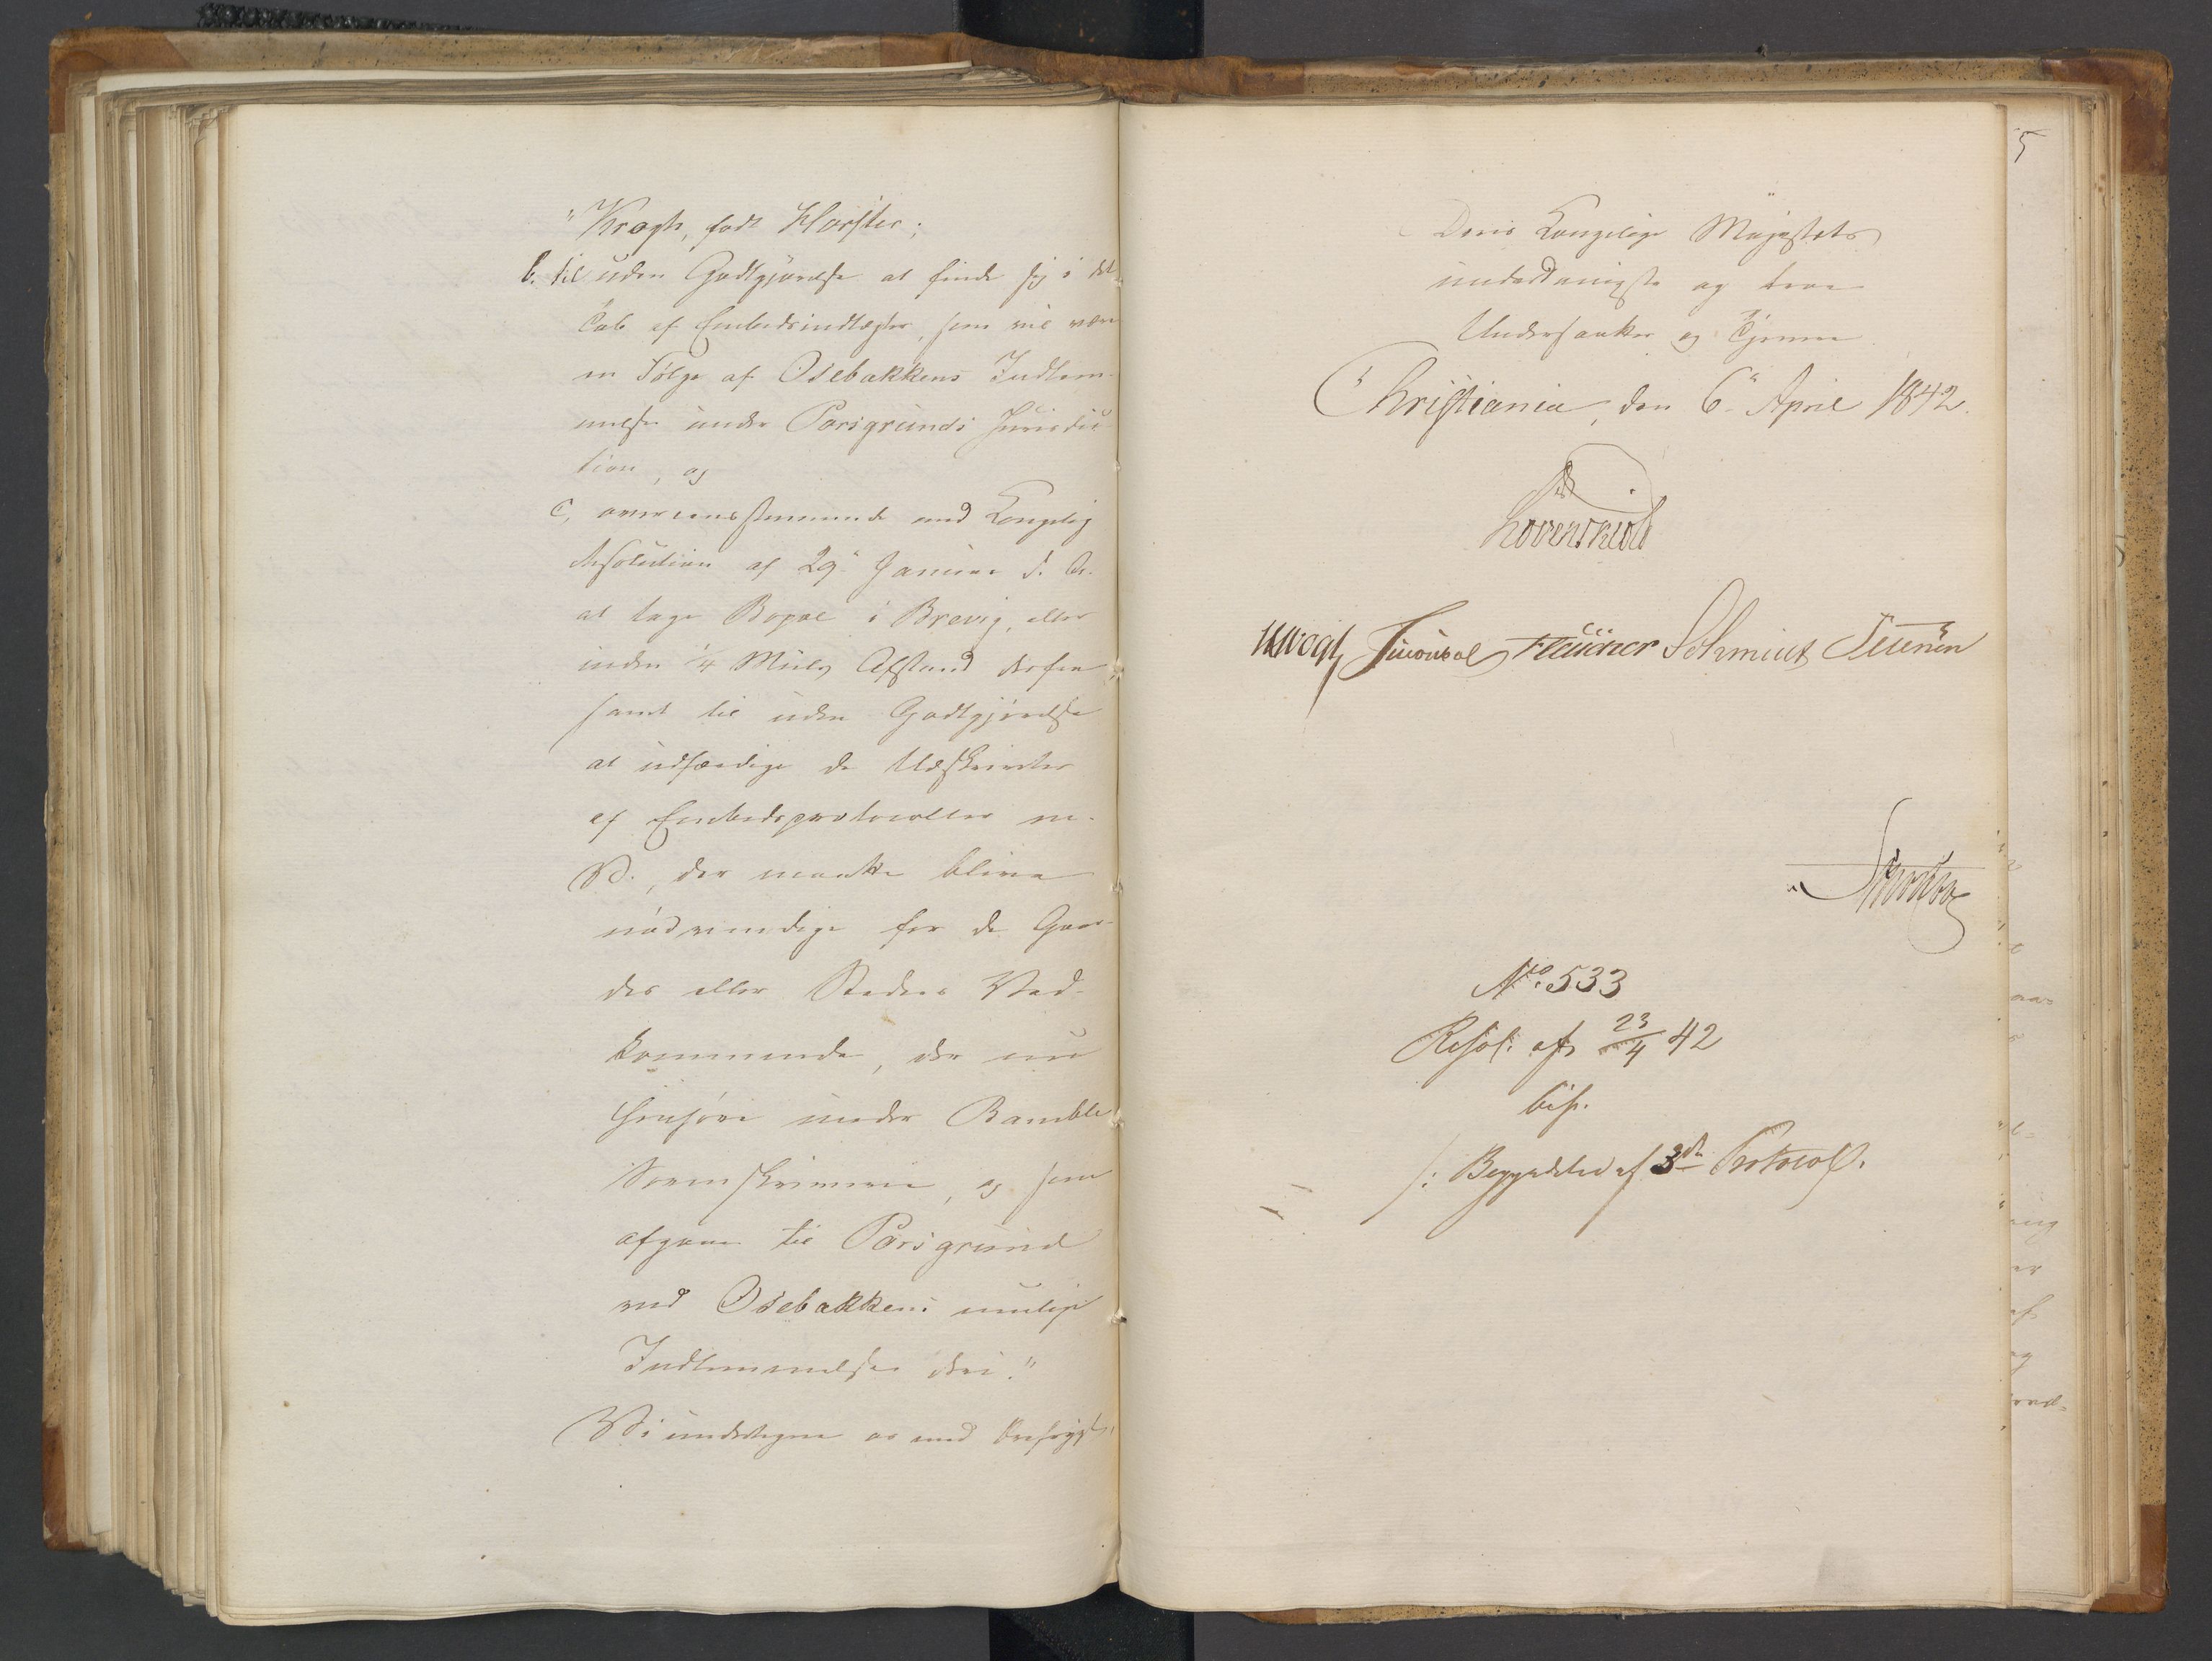 "Kragh, født Horster;
b. til uden Godtgjørelse at finde sig i det
Tab af Embedsindtægter, som vil være
en Følge af Osebakkens Indlem-
melse under Porsgrunds Jurisdic-
tion, og
c, overeensstemmende med Kongelig
Resolution af 29de Januar d. A.
at tage Bopæl i Brevig, eller
inden 1/4 Miils Afstand derfra
samt til uden Godtgjørelse
at udfærdige de Udskrivter
af Embedsprotocoller m.
V., der maatte blive
nødvendige for de Gaar-
des eller Steders Ved-
kommende, der nu
henhøre under Bamble
Sorenskriverie, og som
afgaae til Porsgrund
ved Osebakkens mulige
Indlemmelse deri."
Vi undertegne os med Ærefrygt,
Deres Kongelige Majestæts
underdanigste og troe
Undersaatter og Tjenere
Christiania, den 6te April 1842.
Løvenskiold
Vogt Schmidt
No. 533
Resol. af 23/4 42
bif.
/: Beggedeled af 3die Protocol.
5